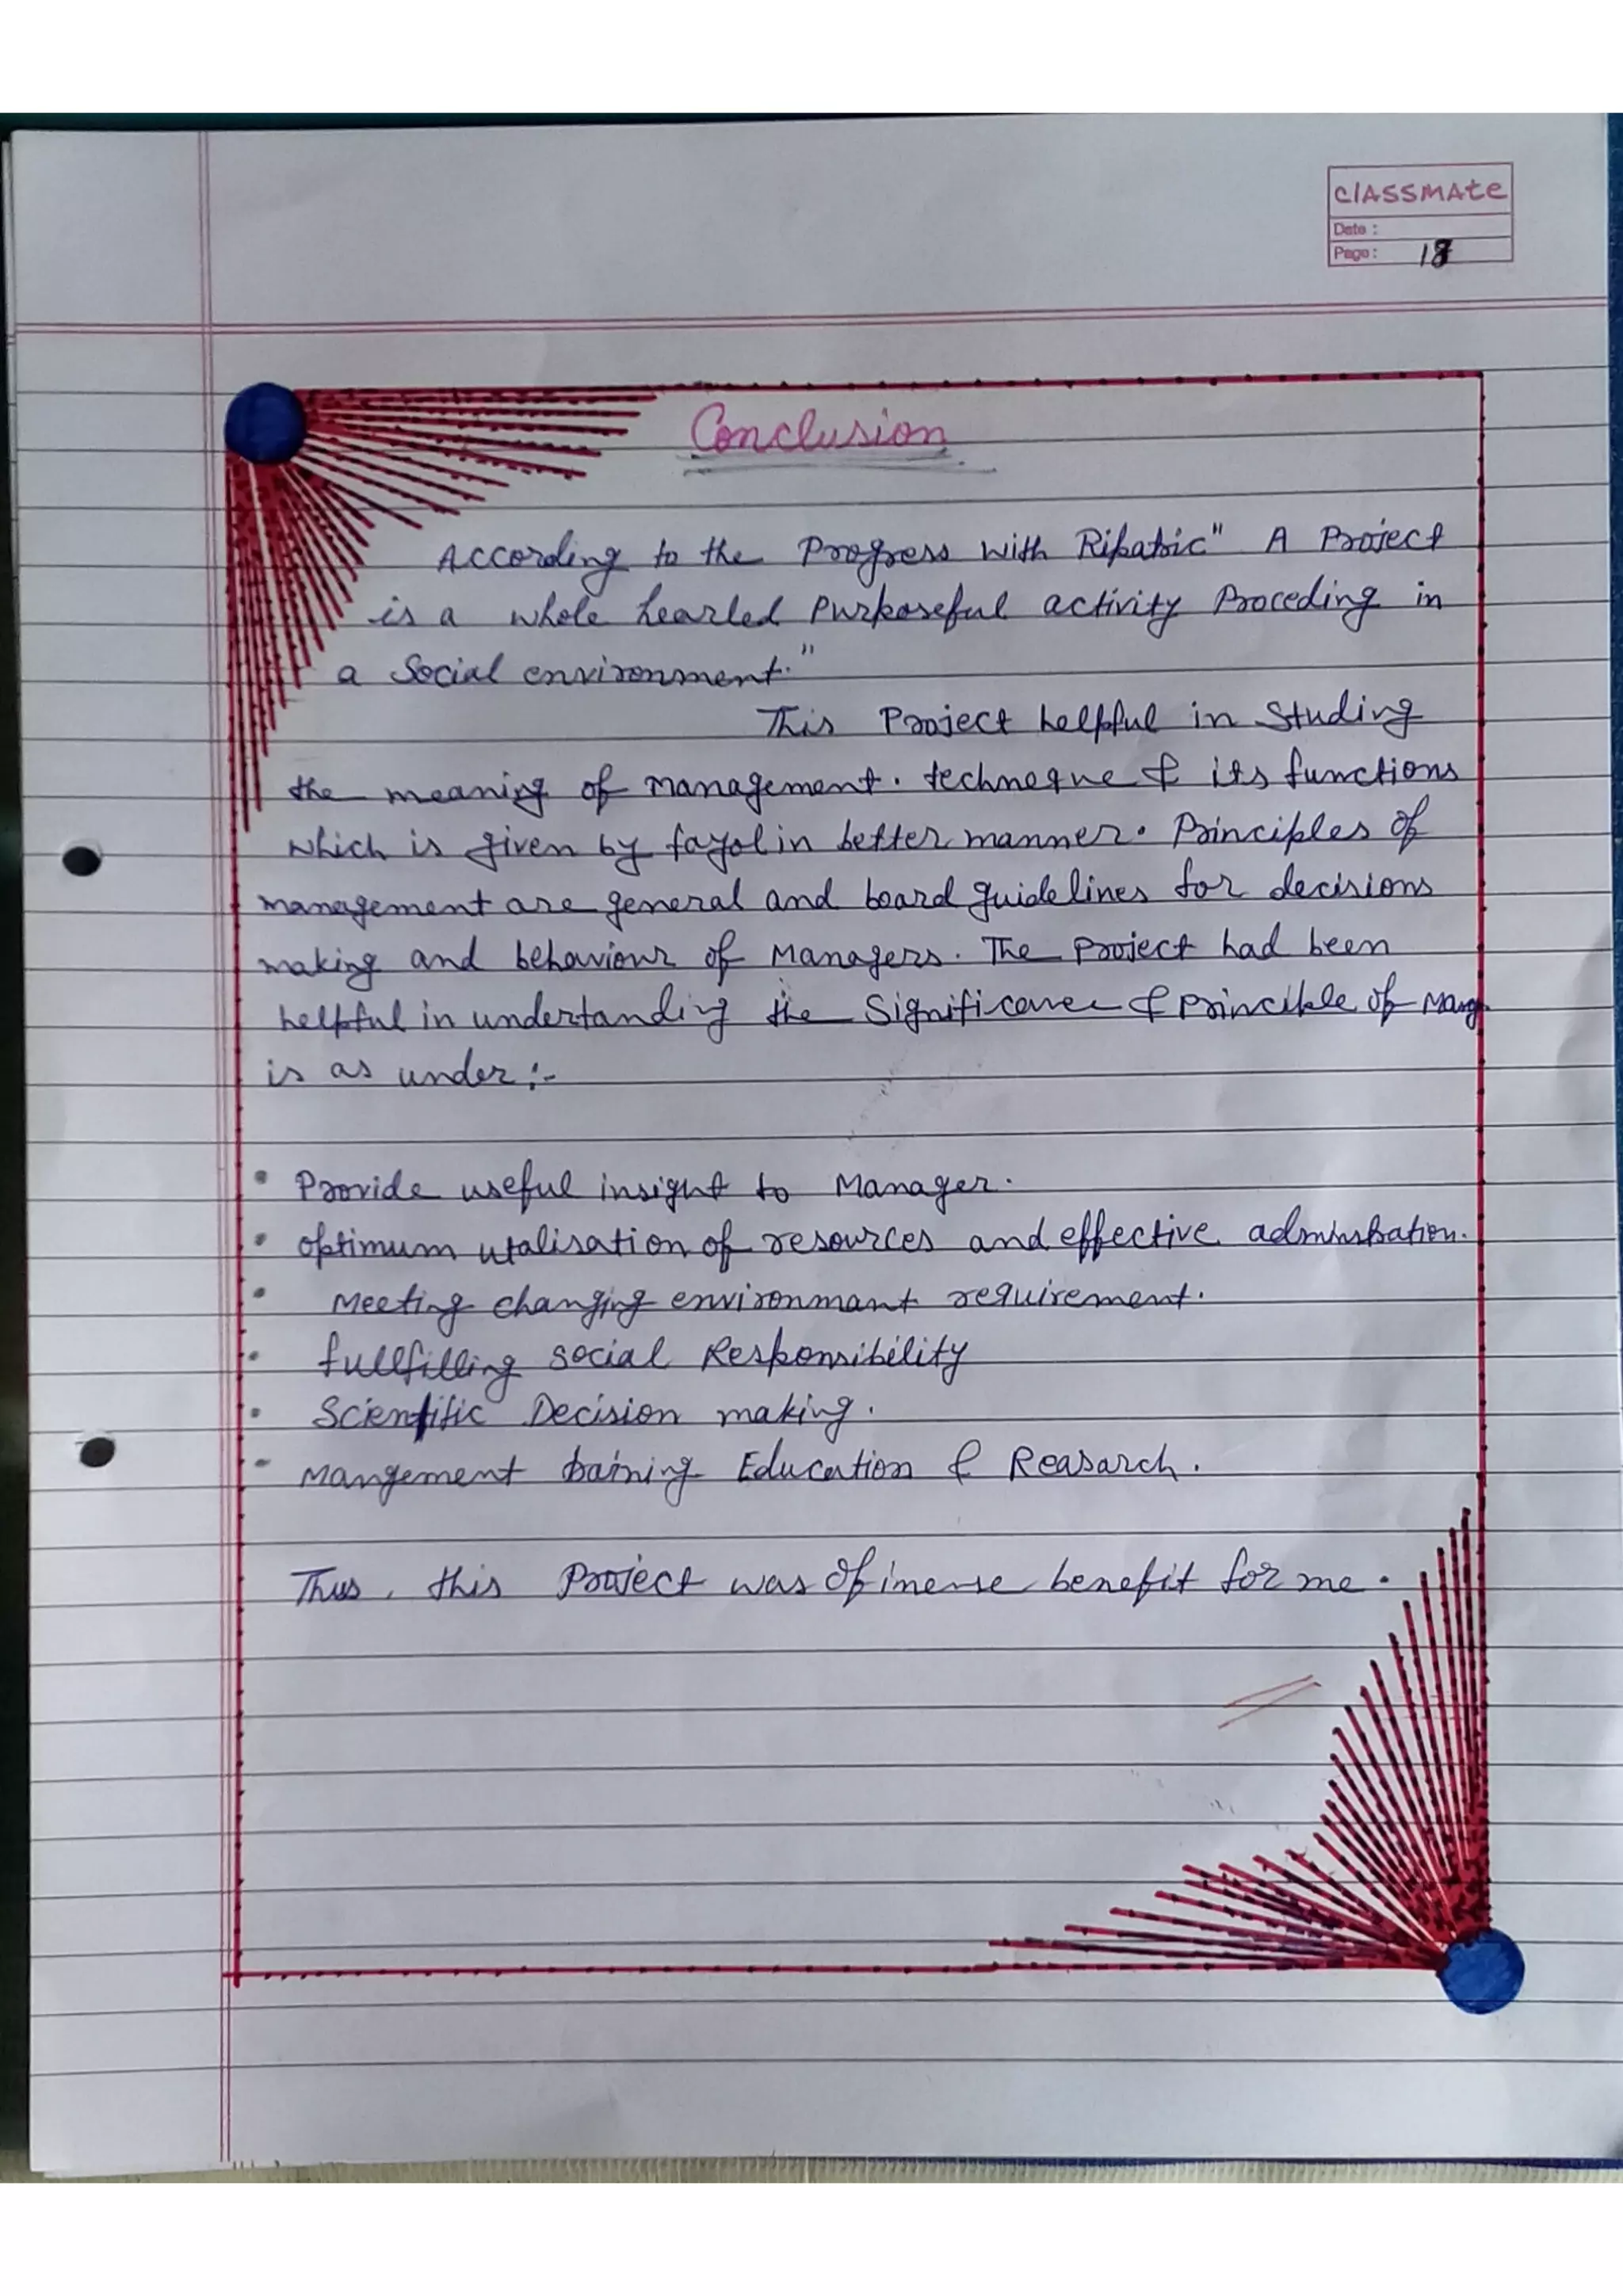 CLASSMATE
Date :
Page :
Conclusion
According to the Progress with Ripatric" A Project
is a whole hearted Purposeful activity Proceding in
a Social environment."
This Project helpful in Studing
the meaning of management. techneque & its functions
which is given by fayol in better manner. Principles of
management are general and board guidelines for decisions
making and behaviour of Managers. The Project had been
helpful in undertanding the Significance & Principle of Mang.
is as under :-
• Provide useful insight to Manager.
• Optimum utalisation of resources and effective adminstration.
• Meeting changing environmant requirement.
• fullfilling social Responsibility
• Scientific Decision making.
• Mangement training Education & Reasarch.
Thus, this Project was of imense benefit for me.